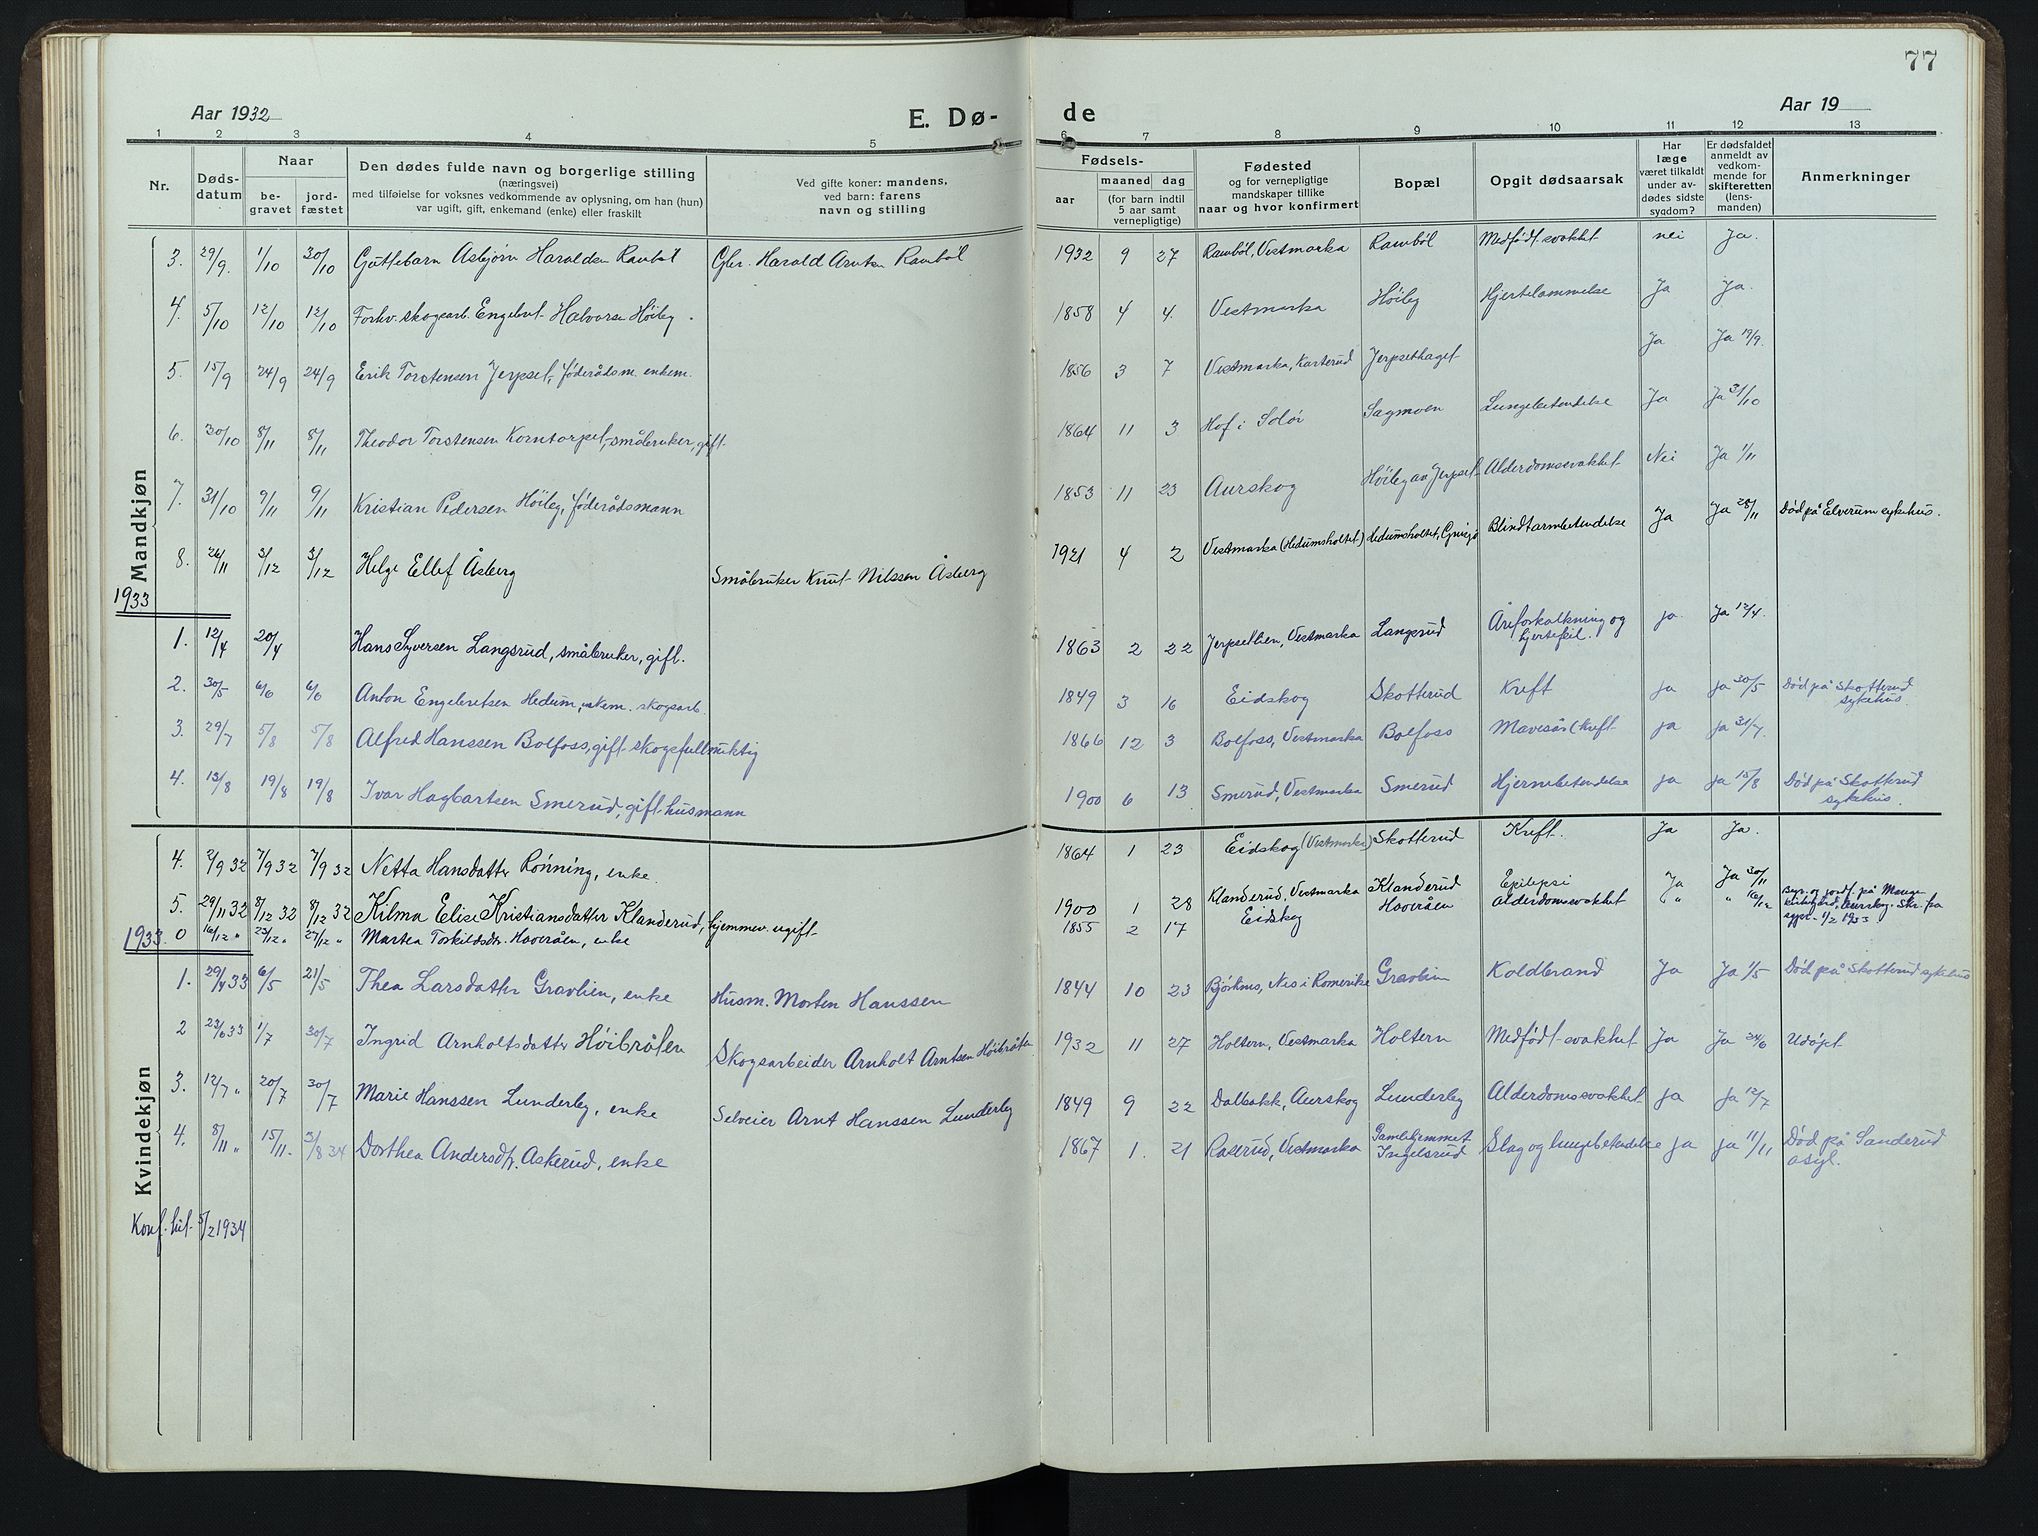 77
Aar 1932
E. Dø-
de
Aar 19
1 2 3 4 5 6 7 8 9 10 11 12 13
Nr.
Døds-
datum
Naar
be-
gravet
jord-
fæstet
Den dødes fulde navn og borgerlige stilling
(næringsvei)
med tilføielse for voksnes vedkommende av oplysning, om han (hun)
var ugift, gift, enkemand (enke) eller fraskilt
Ved gifte koner: mandens,
ved barn: farens
navn og stilling
Fødsels-
aar
maaned dag
(for barn indtil
5 aar samt
vernepligtige)
Fødested
og for vernepligtige
mandskaper tillike
naar og hvor konfirmert
Bopæl
Opgit dødsaarsak
Har
læge
været tilkaldt
under av-
dødes sidste
sygdom?
Er dødsfaldet
anmeldt av
vedkom-
mende for
skifteretten
(lens-
manden)
Anmerkninger
Mandkjøn
3. 29/9. 1/10 30/10 Guttebarn Asbjørn Haraldsen Rambøl Gbr. Harald Arntsen Rambøl 1932 9 27 Rambøl, Vestmarka Rambøl Medfødt svakhet nei Ja.
4. 5/10 12/10 12/10 Forhv. skogsarb. Engebret Halvorsen Høiby. 1858 4 4. Vestmarka Høiby Hjertelammelse Ja ja.
5. 15/9 24/9 24/9 Erik Torstensen Jerpset, føderådsm. enkem. 1856 3 7 Vestmarka, Karterud Jerpsethaget Ja Ja 19/9.
6. 30/10 8/11 8/11 Theodor Torstensen Korntorpet, småbruker, gift 1864 11 3 Hof i Solør Sagmoen Lungebetendelse Ja Ja 31/10
7. 31/10 9/11 9/11 Kristian Pedersen Høiby, føderådsmann 1853 11 23 Aurskog Høiby av Jerpset Alderdomssvakhet Nei Ja 1/11
8. 26/11 3/12 3/12 Helge Ellef Åsberg Småbruker Knut Nilssen Åsberg 1921 4 2 Vestmarka (Hedumsholtet) Hedumsholtet, Blindtarmbetendelse Ja Ja 28/11 Død på Elverum sykehus.
1933
1. 12/4 20/4 Hans Syversen Langsrud, småbruker, gift. 1863 2 22 Jerpsetlien, Vestmarka Langsrud Åreforkalkning og hjertefeil. ja. Ja 12/4.
2. 30/5 6/6 6/6 Anton Engebretsen Hedum, enkem. skogsarb. 1849 3 16 Eidskog Skotterud Kreft ja ja 30/5 Død på Skotterud sykehus.
3. 29/7 5/8 5/8 Alfred Hanssen Bolfoss, gift skogsfullmektig 1866 12 3 Bolfoss, Vestmarka Bolfoss Mavesår (kreft ja ja 31/7.
4. 13/8 19/8 19/8 Ivar Hagbartsen Smerud, gift husmann 1900 6 13 Smerud, Vestmarka Smerud Hjernebetendelse ja ja 15/8 Død på Skotterud sykehus.
Kvindekjøn
4. 2/9 32 7/9 32 7/9 32 Netta Hansdatter Rønning, enke. 1864 1 23 Eidskog (Vestmarka) Skotterud Kreft. Ja Ja.
5. 29/11 32 8/12 32 8/12 32 Kilma Elise Kristiansdatter Klanderud, hjemmev. ugift 1900 1 28 Klanderud, Vestmarka Klanderud Epilepsi Ja Ja 30/11
1933
0 16/12 " 23/12 " 27/12 " Martea Torkildsdr. Haveråen, enke 1855 2 17 Eidskog Haveråen Alderdomssvakhet " " 16/12 Begr. og jordf. på Mangen kirkegård, Aurskog. Skr. fra sypr. 1/2 1933
1. 29/4 33 6/5 21/5 Thea Larsdatter Gravlien, enke Husm. Morten Hanssen 1844 10 23 Bjørknes, Nes i Romerike Gravlien Koldbrand Ja Ja 1/5 Død på Skotterud sykehus
2 23/6 33 1/7 30/7 Ingrid Arnholtsdatter Høibråten Skogsarbeider Arnholt Arntsen Høibråten 1932 11 27 Holtern, Vestmarka Holtern Medfødt svakhet Ja Ja 24/6 Udøpt
3. 12/7 " 20/7 30/7 Marie Hanssen Lunderby, enke Selveier Arnt Hanssen Lunderby 1849 9 22 Dalbakk, Aurskog Lunderby Alderdomssvakhet ja Ja 12/7
4. 8/11 " 15/11. 3/8 34 Dorthea Andersdtr. Askerud, enke 1867 1. 21 Raserud, Vestmarka Gamlehjemmet Ingelsrud Slag og lungebetendelse ja ja 11/11 Død på Sanderud asyl.
Konf. hit 5/2 1934